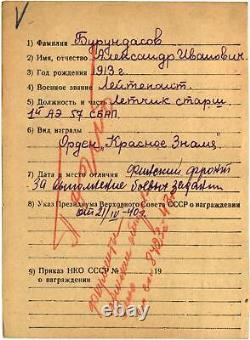 1) Фамилия Бурундасов
2) Имя, отчество Александр Иванович
3) Год рождения 1913 г.
4) Военное звание Лейтенант
5) Должность и часть летчик старш.
1й АЭ 57 СБАП.
6) Вид награды
Орден „Красное Знамя"
7) Дата и место отличия Финский фронт
За выполнение боевых заданий
8) Указ Президиума Верховного Совета СССР о награждении
от 21/IV-40 г.
9) Приказ НКО СССР № 19
о награждении